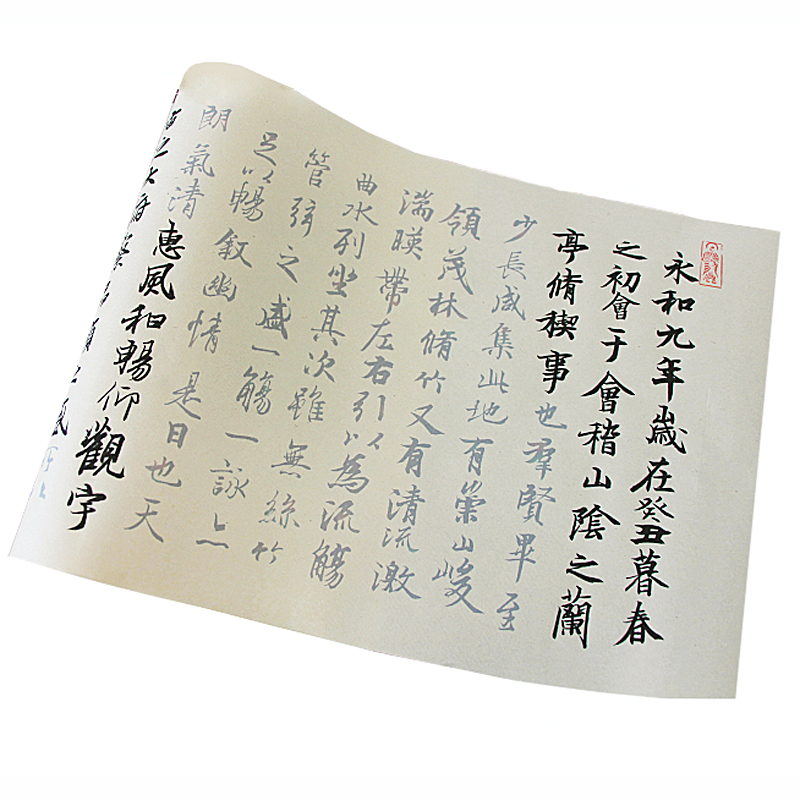 永和九年歲在癸丑暮春
之初會于會稽山陰之蘭
亭脩稧事也羣賢畢至
少長咸集此地有崇山峻
領茂林脩竹又有清流激
湍暎帶左右引以為流觴
曲水列坐其次雖無絲竹
管弦之盛一觴一詠亦
足以暢敘幽情是日也天
朗氣清惠風和暢仰觀宇
宙之大俯察品類之盛所以